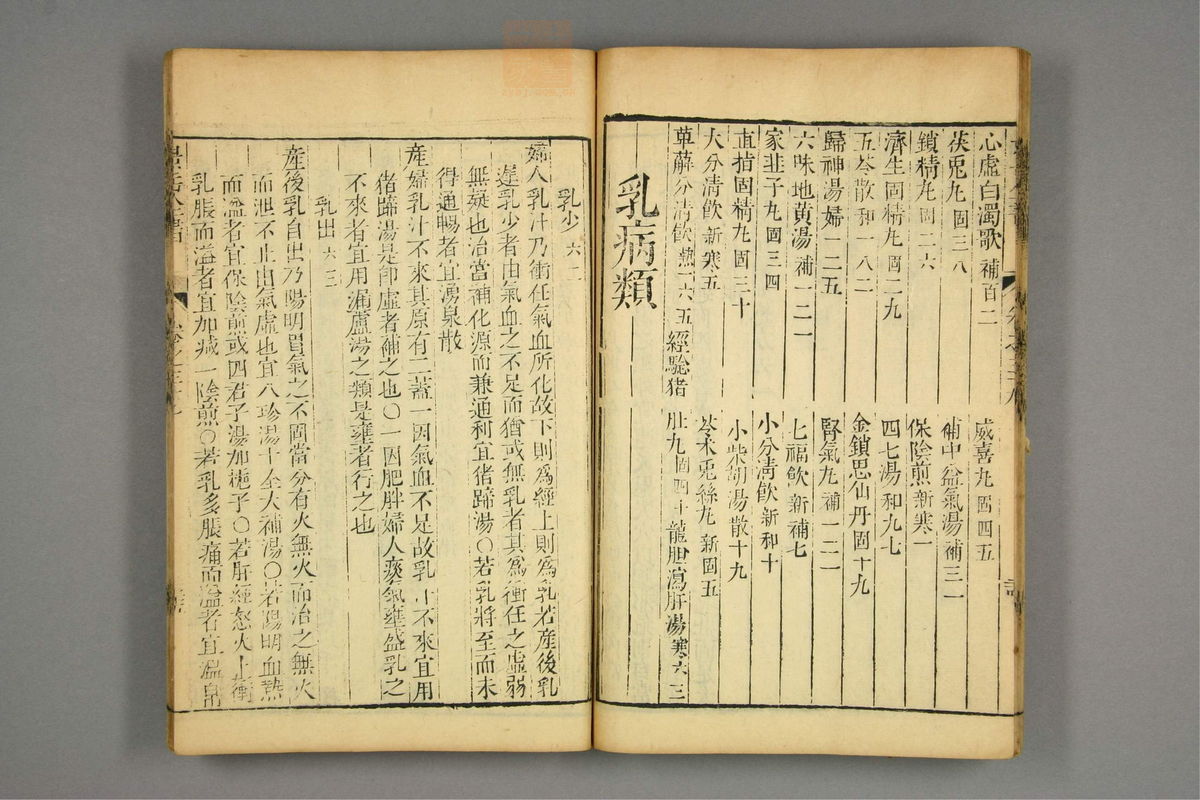 心虛白濁歌補百二
威喜丸固四五
茯兎丸固三八
補中益氣湯補三一
鎖精丸固二六
保陰煎新寒一
濟生固精丸固二九
四七湯和九七
五苓散和一八二
金鎖思仙丹固十九
歸神湯婦一二五
腎氣丸補一二一
六味地黃湯補一二一
七福飲新補七
家韭子丸固三四
小分清飲新和十
直指固精丸固三十
小柴胡湯散十九
大分清飲新寒五
苓朮兎絲丸新固五
萆薢分清飲熱一六五
經驗猪肚丸固四十
龍胆瀉肝湯寒六三
乳病類
乳少六二
婦人乳汁乃衝任氣血所化故下則爲經上則爲乳若産後乳
遲乳少者由氣血之不足而猶或無乳者其爲衝任之虛弱
無疑也治當補化源而兼通利宜猪蹄湯○若乳將至而未
得通暢者宜湧泉散
産婦乳汁不來其原有二蓋一因氣血不足故乳汁不來宜用
猪蹄湯是即虛者補之也○一因肥胖婦人痰氣壅盛乳之
不來者宜用漏蘆湯之類是壅者行之也
乳出六三
産後乳自出乃陽明胃氣之不固當分有火無火而治之無火
而泄不止由氣虛也宜八珍湯十全大補湯○若陽明血熱
而溢者宜保陰煎或四君子湯加梔子○若肝經怒火上衝
乳脹而溢者宜加减一陰煎○若乳多脹痛而溢者宜溫帛
景岳全書
卷之三十九